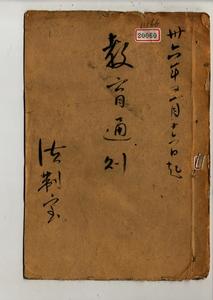 卅六年十一月十六日起
20060
教育通则
法制室